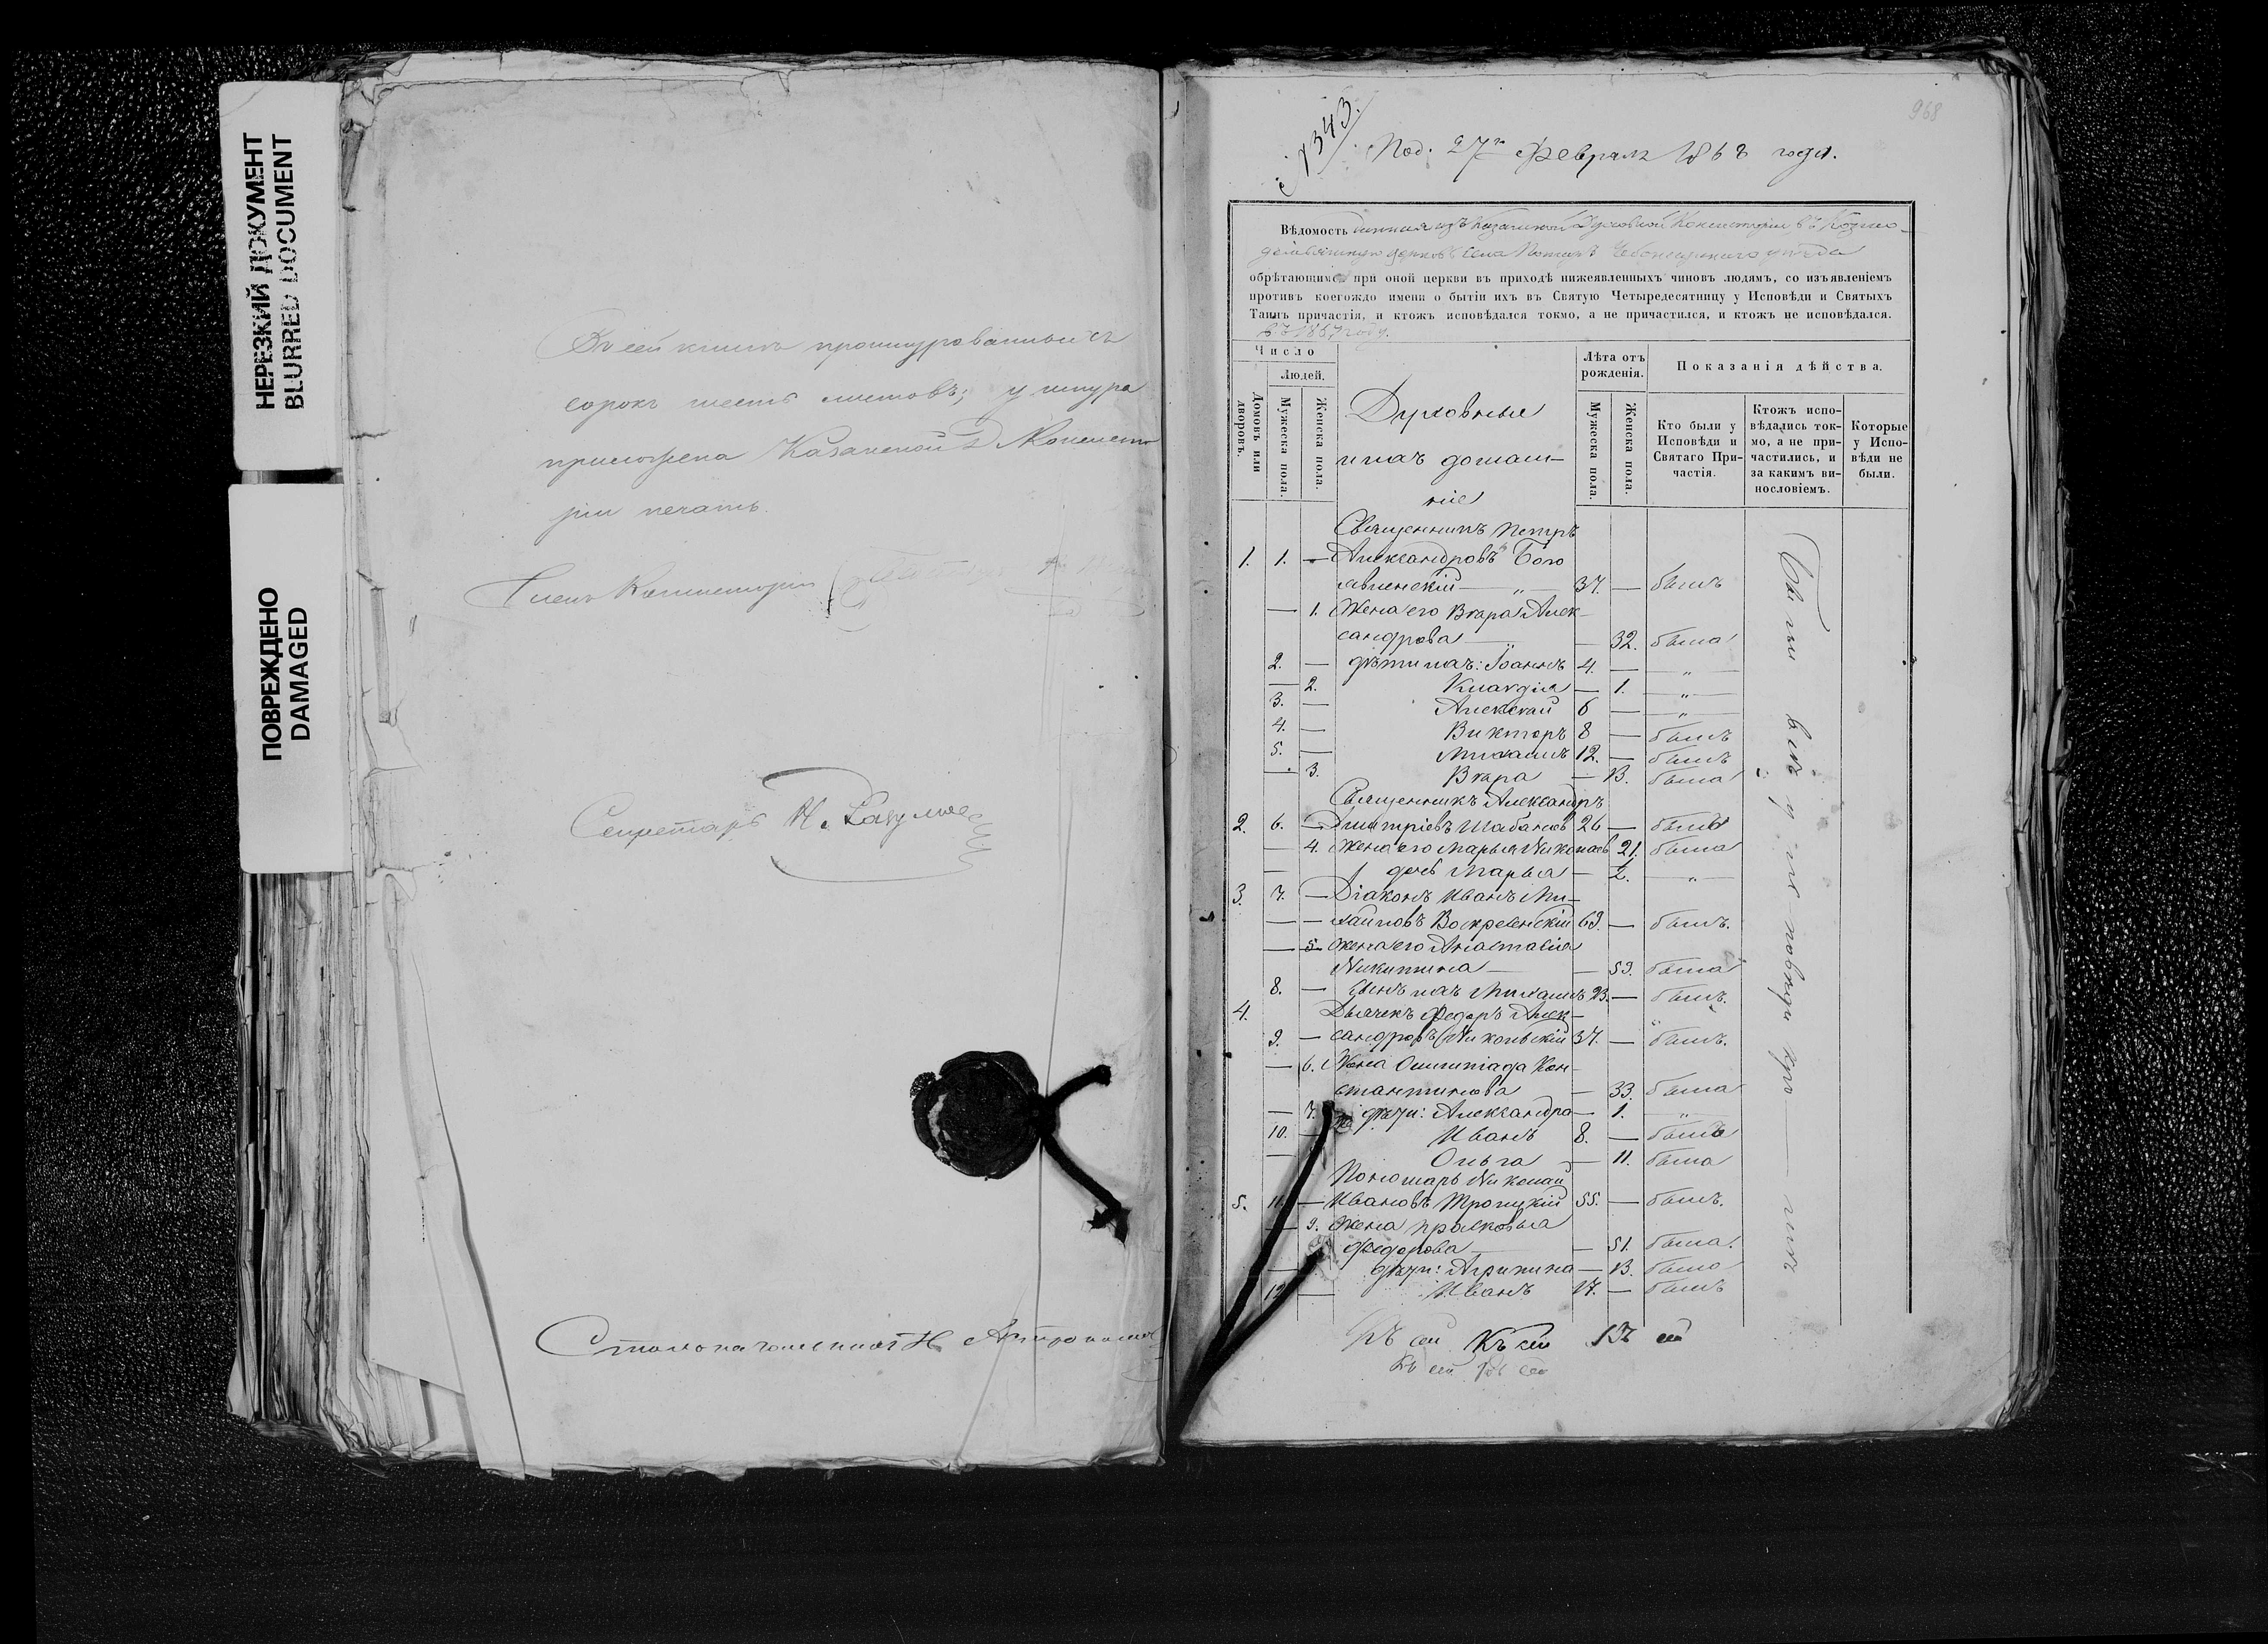 НЕРЕЗКИЙ ДОКУМЕНТ
BLURRED DOCUMENT
ПОВРЕЖДЕНО
DAMAGED
Въ сей книгѣ прошнурованныхъ
сорокъ шесть листовъ; у шнура
приложена Казанской Д Консисто
ріи печать.
Членъ Консисторіи
Секретарь Н. Разумов
Столоначальникъ Н.
968
№ 343.
Под. 27го Февраля 1868 года.
Вѣдомость данная изъ Казанской Духовной Консисторіи въ Козмо-
деміанскую церковь села Чебоксарскаго уѣзда
обрѣтающимся при оной церкви въ приходѣ нижеявленныхъ чиновъ людямъ, со изъявленіемъ
противъ коегождо имени о бытіи ихъ въ Святую Четыредесятницу у Исповѣди и Святыхъ
Таинъ причастія, и ктожъ исповѣдался токмо, а не причастился, и ктожъ не исповѣдался.
въ 1867 году.
Число
Людей.
Домовъ или дворовъ.
Мужеска пола.
Женска пола.
Духовные
и ихъ домаш-
ніе
Лѣта отъ рожденія.
Мужеска пола.
Женска пола.
Показанія дѣйства.
Кто были у Исповѣди и Святаго При- частія.
Ктожъ испо- вѣдались ток- мо, а не при- частились, и за какимъ ви- нословіемъ.
Которые у Испо- вѣди не были.
Священникъ Петръ
1. 1. — Александровъ Бого
явленскій — „ — 37. — былъ
— 1. Жена его Вѣра Алек-
сандрова — „ — 32. была
2. — дѣти ихъ: Іоаннъ 4. — „
— 2. Клавдія — 1. — „
3. — Алексѣй 6 — „
4. — Викторъ 8 — былъ
5. — Михаилъ 12. — былъ
— 3. Вѣра — 13. была
Священникъ Александръ
2. 6. — Дмитріевъ Шабановъ 26 — былъ
— 4. Жена его Марья Николаев 21. была
— дочь Марья — 2. „
3. 7. — Діаконъ Иванъ Ми-
— — хайловъ Воскресенскій 63. — былъ.
— 5. жена его Анастасія
Никитина — — 53. была
8. — сынъ ихъ Михаилъ 23. — былъ.
4. Дьячекъ Федоръ Алек-
9. — сандровъ Никольскій 37. — былъ.
— 6. Жена Олимпіада Кон-
стантинова — 33. была
— 7. дѣти: Александра — 1. „
10. — Иванъ 8. — былъ
— Ольга — 11. была
Пономарь Николай
5. 11. — Ивановъ Троицкій 55. — былъ.
— 9. Жена Прасковья
Федорова — — 51. была.
— дѣти: Агрипина — 13. была
12 — Иванъ 17. — былъ